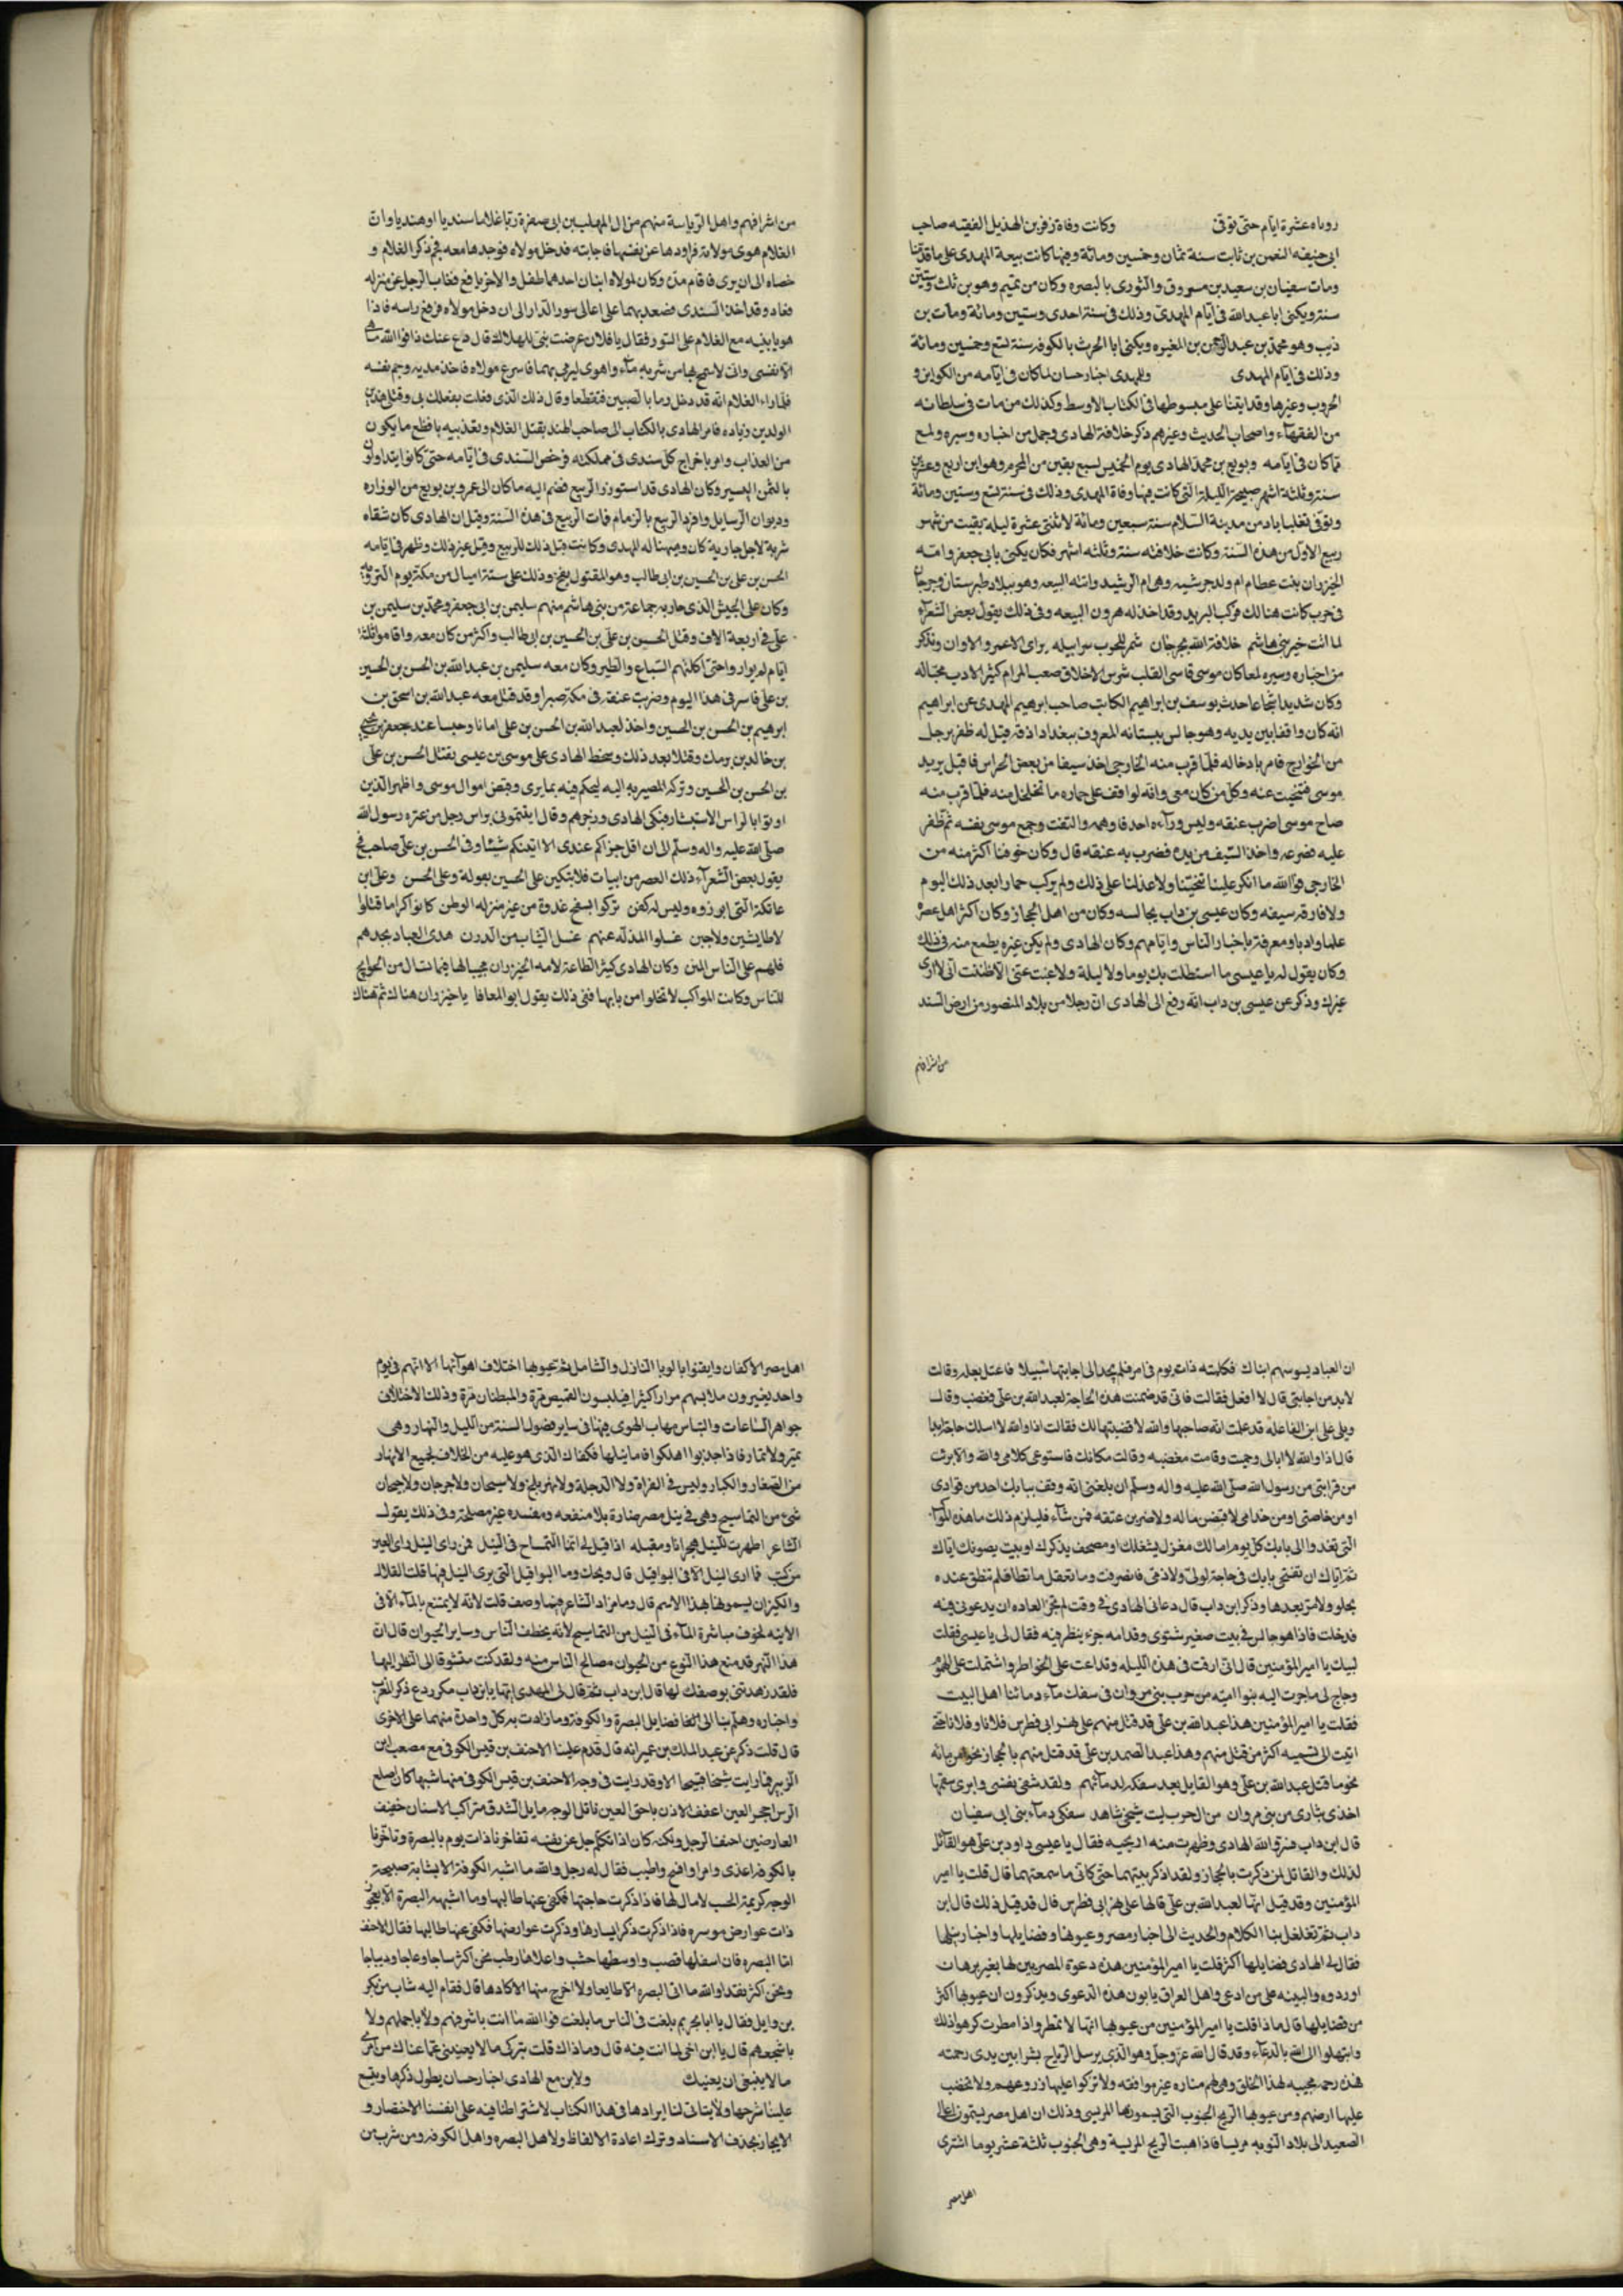 روياه عشرة ايام حتى توفى وكانت وفاة زفر بن الهذيل الفقيه صاحب
ابى حنيفه النعمن بن ثابت سنة ثمان وخمسين ومائة وفيها كانت بيعة المهدى على ما قدمنا
ومات سفيان بن سعيد بن مسروق والثورى بالبصره وكان من تميم وهو بن ثلث وستين
سنة ويكنى ابا عبد الله فى ايام المهدى وذلك فى سنة احدى وستين ومائة ومات بن
ذيب وهو محمد بن عبد الرحمن بن المغيره ويكنى ابا الحرث بالكوفه سنة تسع وخمسين ومائة
وذلك فى ايام المهدى وللمهدى اخبار حسان لما كان فى ايامه من الكواين و
الحروب وغيرها وقد اتينا على مبسوطها فى الكتاب الاوسط وكذلك من مات فى سلطانه
من الفقهآء واصحاب الحديث وغيرهم ذكر خلافة الهادى وجمل من اخباره وسيره ولمع
مما كان فى ايامه وبويع بن محمد الهادى يوم الخميس لسبع بقين من المحرم وهو ابن اربع وعشرين
سنة وثلثة اشهر صبيحة الليلة التى كانت فيها وفاة المهدى وذلك فى سنة تسع وستين ومائة
وتوفى بعيساباد من مدينة السلام سنة سبعين ومائة لاثنتى عشرة ليله بقيت من شهر
ربيع الاول من هذه السنة وكانت خلافته سنة وثلثه اشهر فكان يكنى بابى جعفر وامه
الخيزران بنت عطا ام ولد جرشيه وهى ام الرشيد واتته البيعه وهو ببلاد طبرستان وجرجان
فى حرب كانت هنالك فركب البريد وقد اخذ له هرون البيعه وفى ذلك يقول بعض الشعرآء
لما اتت خير بنى هاشم خلافة الله بجرجان شمر للحرب سرابيله براى لا غمر ولا وان ونذكر
من اخباره وسيره لمعا كان موسى قاسى القلب شرس الاخلاق صعب المرام كثير الادب محبا له
وكان شديدا شجاعا حدث يوسف بن ابراهيم الكاتب صاحب ابرهيم المهدى عن ابراهيم
انه كان واقفا بين يديه وهو جالس ببستانه المعروف ببغداد اذ قيل له ظفر برجل
من الخوارج فامر بادخاله فلما قرب منه الخارجى اخذ سيفا من بعض الحراس فاقبل يريد
موسى فتنحيت عنه وكل من كان معى وانه لواقف على حماره ما تخلخل منه فلما قرب منه
صاح موسى اضرب عنقه وليس ورآءه احد فاوهمه والتفت وجمع موسى نفسه ثم ظفر
عليه فصرعه واخذ السيف من يده فضرب به عنقه قال وكان خوفنا اكثر منه من
الخارجى فوالله ما انكر علينا تنحيتنا ولا عذلنا على ذلك ولم يركب حمارا بعد ذلك اليوم
ولا فارقه سيفه وكان عيسى بن داب يجالسه وكان من اهل الحجاز وكان اكثر اهل عصره
علما وادبا ومعرفة باخبار الناس وايامهم وكان الهادى ولم يكن غيره يطمع منه فى ذلك
وكان يقول له يا عيسى ما استطلت بك يوما ولا ليلة ولا غبت عنى الا ظننت انى لا ارى
غيرك وذكر عن عيسى بن داب انه رفع الى الهادى ان رجلا من بلاد المنصور من ارض السند
من اشرافهم
من اشرافهم واهل الرياسة منهم من ال المهلب بن ابى صفرة ربا غلاما سنديا او هنديا وان
الغلام هوى مولاته فراودها عن نفسها فاجابته فدخل مولاه فوجدها معه فجب ذكر الغلام و
خصاه الى ان برى فاقام مدة وكان لمولاه ابنان احدهما طفل والاخر يافع فغاب الرجل عن منزله
فعاد وقد اخذ السندى فصعد بهما على اعالى سور الدار الى ان دخل مولاه فرفع راسه فاذا
هو بابنيه مع الغلام على السور فقال يا فلان عرضت بنى للهلاك قال دع عنك ذا فوالله ما هى
الا نفسى وانى لاسمح بها من شربه مآء واهوى ليرمى بهما فاسرع مولاه فاخذ مديه وجب نفسه
فلما راه الغلام انه قد دخل رما بالصبيين فتقطعا وقال ذلك الذى فعلت بفعلك بى وقتلى هذين
الولدين زياده فامر الهادى بالكتاب الى صاحب الهند بقتل الغلام وتعذبيه بافظع ما يكون
من العذاب وامر باخراج كل سندى فى مملكته فرخص السندى فى ايامه حتى كانوا يتداولو
بالثمن اليسير وكان الهادى قد استوزر الربيع فضم اليه ما كان الى عمرو بن بويع من الوزاره
وديوان الرسايل وافرد الربيع بالزمام فمات الربيع فى هذه السنة وقيل ان الهادى كان سقاه
شربة لاجل جارية كان وهبها له المهدى وكانت قبل ذلك للربيع وقيل غير ذلك وظهر فى ايامه
الحسن بن على بن الحسين بن ابى طالب وهو المقتول بفخ وذلك على ستة اميال من مكة يوم الترويه
وكان على الجيش الذى حاربه جماعة من بنى هاشم منهم سليمن بن ابى جعفر ومحمد بن سليمن بن
على فى اربعة الاف وقتل الحسين بن على بن الحسين بن ابى طالب واكثر من كان معه واقاموا ثلثة
ايام لم يواروا حتى اكلتهم السباع والطير وكان معه سليمن بن عبد الله بن الحسن بن الحسين
بن على فاسر فى هذا اليوم وضربت عنقه فى مكة صبرا وقد قتل معه عبد الله بن اسحق بن
ابرهيم بن الحسن بن الحسين واخذ لعبد الله بن الحسن بن على امانا وحبسا عند جعفر بن يحيى
بن خالد بن برمك وقتلا بعد ذلك وسخط الهادى على موسى بن عيسى بقتل الحسن بن على
بن الحسن بن الحسين وتركه المصير به اليه ليحكم فيه بما يرى وقبض اموال موسى واظهر الذين
اوتوا بالراس الاستبشار فبكى الهادى وزجرهم وقال ايتمونى براس رجل من عتره رسول الله
صلى الله عليه واله وسلم الا ان اقل جزاكم عندى الا اتيتكم شيئا وفى الحسن بن على صاحب فخ
يقول بعض الشعرآء ذلك العصر من ابيات فلابكين على الحسين بعولة وعلى الحسن وعلى ابن
عاتكة التى ابو زوه وليس له كفن تركوا بسفح غدوة من غير منزله الوطن كانوا كراما قتلوا
لا طايشين ولا جبن غسلوا المذلة عنهم غسل الثياب من الدرن هدى العباد بجدهم
فلهم على الناس المنن وكان الهادى كثير الطاعة لامه الخيزران مجيبا لها فيما تسال من الحوايج
للناس وكانت المواكب لا تخلوا من بابها ففى ذلك يقول ابو المعافا يا خيزران هناك ثم هناك
ان العباد يسوسهم ابناك فكلمته ذات يوم فى امر فلم يجد الى اجابتها سبيلا فاعتل بعله وقالت
لابد من اجابتى قال لا افعل فقالت فانى قد ضمنت هذه الحاجة لعبد الله بن على فغضب وقال
ويلى على ابن الفاعلة قد علمت انه صاحبها والله لا قضيتها لك فقالت اذا والله لا اسلك حاجة ابدا
قال اذا والله لا ابالى وحميت وقامت مغضبه وقالت مكانك فاستوعى كلامى والله والا برئت
من قرابتى من رسول الله صلى الله عليه واله وسلم ان بلغنى انه وقف ببابك احد من قوادى
او من خاصتى او من خدامى لاقبضن ماله ولاضربن عنقه فمن شآء فليلزم ذلك ما هذه المواكب
التى تغدوا الى بابك كل يوم اما لك مغزل يشغلك او مصحف يذكرك او بيت يصونك اياك
ثم اياك ان تفتحى بابك فى حاجة لولى ولا ذمى فانصرفت وما تعقل ما تطا فلم تنطق عنده
بحلو ولا مر بعدها وذكر ابن داب قال دعانى الهادى فى وقت لم تجر العاده ان يدعونى فيه
فدخلت فاذا هو جالس فى بيت صغير شتوى وقدامه جزء ينظر فيه فقال لى يا عيسى فقلت
لبيك يا امير المؤمنين قال انى ارقت فى هذه الليله وتداعت على الخواطر واشتملت على الهموم
وجاج لى ما جرت اليه بنوا اميه من حرب بنى مروان فى سفك مآء دمائنا اهل البيت
فقلت يا امير المؤمنين هذا عبد الله بن على قد قتل منهم على نهر ابى فطرس فلانا وفلانا حتى
اتيت الى تسميه اكثر من قتل منهم وهذا عبد الصمد بن على قد قتل منهم بالحجاز نحوا من بانه
نحو ما قتل عبد الله بن على وهو القايل بعد سفكه لدمآئهم ولقد شفى نفسى وابرى سقمها
اخذى بثارى من بنى مروان من ال حرب ليت شيخى شاهد سفكى دمآء بنى ابى سفيان
قال ابن داب فسر والله الهادى وظهرت منه اريحيه فقال يا عيسى داود بن على هو القآئل
لذلك والقاتل لمن ذكرت بالحجاز ولقد اذكر بيتهما حتى كانى ما سمعتهما قال قلت يا امير
المؤمنين وقد قيل انها لعبد الله بن على قالها على نهر ابى فطرس قال قد قيل ذلك قال بن
داب ثم تغلغل بنا الكلام والحديث الى اخبار مصر وعيوبها وفضايلها واخبار نيلها
فقال لى الهادى فضايلها اكثر قلت يا امير المؤمنين هذه دعوة المصريين لها بغير برهان
اوردوه والبينه على من ادعى واهل العراق يابون هذه الدعوى ويذكرون ان عيوبها اكثر
من فضايلها قال ماذا قلت يا امير المؤمنين من عيوبها انها لا تمطر واذا مطرت كرهوا ذلك
وابتهلوا الى الله بالدعآء وقد قال الله عز وجل وهو الذى يرسل الرياح بشرا بين يدى رحمته
فهذه رحمة مجيبه لهذا الخلق وهى لهم مضاره غير موافقه ولا تزكوا عليها زروعهم ولا تخضب
عليها ارضهم ومن عيوبها الريح الجنوب التى يسمونها المريسى وذلك ان اهل مصر يسمون اعالى
الصعيد الى بلاد النوبه مريسا فاذا هبت الريح المريسية وهى الجنوب ثلثة عشر يوما اشترى
اهل مصر
اهل مصر الاكفان وايقنوا بالوبا النازل والشامل ثم عيوبها اختلاف اهوآئها الا انهم فى يوم
واحد يغيرون ملابسهم مرارا كثيرا فيلبسون القميص مرة والمبطنات مرة وذلك لاختلاف
جواهر الساعات والناس مهاب الهوى فيها فى ساير فصول السنة من الليل والنهار وهى
تمير ولا تمتار فاذا اجدبوا اهلكوا فاما نيلها فكفاك الذى هو عليه من الخلاف لجميع الانهار
من الصغار والكبار وليس فى الفراة ولا الدجلة ولا نهر بلخ ولا سيحان ولا جرجان ولا جيحان
شئ من التماسيح وهى فى نيل مصر ضارة بلا منفعه ومفسده غير مصلحة وفى ذلك يقول
الشاعر اظهرت للنيل هجرانا ومقبله اذ قيل لى انما التمساح فى النيل فمن راى النيل راى العين
من كتب فما ارى النيل الا فى البواقيل قال ويحك وما البواقيل التى يرى النيل فيها قلت القلال
والكيزان يسمونها بهذا الاسم قال وما مراد الشاعر فيما وصف قلت لانه لا يمتنع بالمآء الا فى
الآنيه لخوف مباشرة المآء فى النيل من التماسيح لانه يختطف الناس وساير الحيوان قال ان
هذا النهر قد منع هذا النوع من الحيوان مصالح الناس منه ولقد كنت متشوقا الى النظر اليها
فلقد زهدتنى بوصفك لها قال ابن داب ثم قال لى المهدى ايها يا بن داب مكررد ع ذكر المغرب
واخباره وهلم بنا الى ذكر فضايل البصرة والكوفة وما زادت به كل واحدة منهما على الاخرى
قال قلت ذكر عن عبد الملك بن عمير انه قال قدم علينا الاحنف بن قيس الكوفى مع مصعب ابن
الزبير فما رايت شيخا قبيحا الا وقد رايت فى وجه الاحنف بن قيس الكوفى منها شبها كان اصلع
الراس اجحر العين اعضف الاذن باحق العين ناتى الوجه مايل الشدق متراكب الاسنان خفيف
العارضين احنف الرجل ولكنه كان اذا تكلم جل عن نفسه تفاخرنا ذات يوم بالبصرة وتفاخرنا
بالكوفه اغذى وامرا وافسح واطيب فقال له رجل والله ما اشبه الكوفة الا بشابة صبيحة
الوجه كريمة الحسب لا مال لها فاذا ذكرت حاجتها فكفى عنها طالبها وما اشبهه البصرة الا بعجوز
ذات عوارض موسره فاذا ذكرت ذكر ايسارها وذكرت عوارضها فكفى عنها طالبها فقال الاحنف
اما البصره فان اسفلها قصب واوسطها خشب واعلاها رطب نحن اكثر ساجا وعاجا وديباجا
ونحن اكثر نقدا والله ما اتى البصره الا طايعا ولا اخرج منها الا كارها قال فقام اليه شاب من بكر
بن وايل فقال يا ابا بحر بم بلغت فى الناس ما بلغت فوالله ما انت باشرفهم ولا باجملهم ولا
باشجعهم قال يا ابن اخى لما انت فيه قال وما ذاك قلت بتركى ما لا يعنينى عما عناك من امرى
ما لا ينبغى ان يعنيك ولابن مع الهادى اخبار حسان يطول ذكرها ويتسع
علينا شرحها ولا يتاتى لنا ايرادها فى هذا الكتاب لاشتراطنا فيه على انفسنا الاختصار و
الايجاز بحذف الاسناد وترك اعادة الالفاظ ولاهل البصره واهل الكوفه ومن شرب من